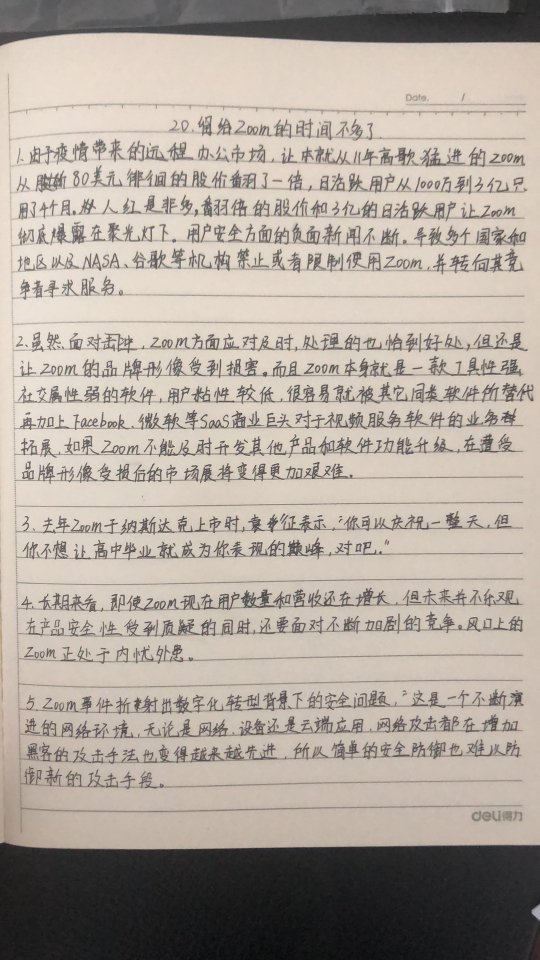 Date. /
20.留给Zoom的时间不多了
1.由于疫情带来的远程办公市场，让本就从11年高歌猛进的zoom
从 80美元徘徊的股价翻了一倍，日活跃用户从1000万到3亿，只
用了4个月。人红是非多，翻倍的股价和3亿的日活跃用户让Zoom
彻底爆露在聚光灯下。用户安全方面的负面新闻不断。导致多个国家和
地区以及NASA、谷歌等机构禁止或者限制使用Zoom，并转向其竞
争者寻求服务。
2.虽然面对击冲，Zoom方面应对及时，处理的也恰到好处，但还是
让Zoom的品牌形像受到损害。而且Zoom本身就是一款工具性强，
社交属性弱的软件，用户粘性较低，很容易就被其它同类软件所替代
再加上Facebook、微软等SaaS商业巨头对于视频服务软件的业务
拓展，如果Zoom不能及时开发其他产品和软件功能升级，在遭受
品牌形像受损后的市场展将变得更加艰难。
3、去年Zoom于纳斯达克上市时，袁征表示，“你可以庆祝一整天，但
你不想让高中毕业就成为你表现的巅峰，对吧，”
4.长期来看，即使Zoom现在用户数量和营收还在增长，但未来并不乐观
在产品安全性受到质疑的同时，还要面对不断加剧的竞争。风口上的
Zoom正处于内忧外患。
5.Zoom事件折射出数字化转型背景下的安全问题，“这是一个不断演
进的网络环境，无论是网络、设备还是云端应用，网络攻击都在增加
黑客的攻击手法也变得越来越先进，所以简单的安全防御也难以防
御新的攻击手段。
deli得力